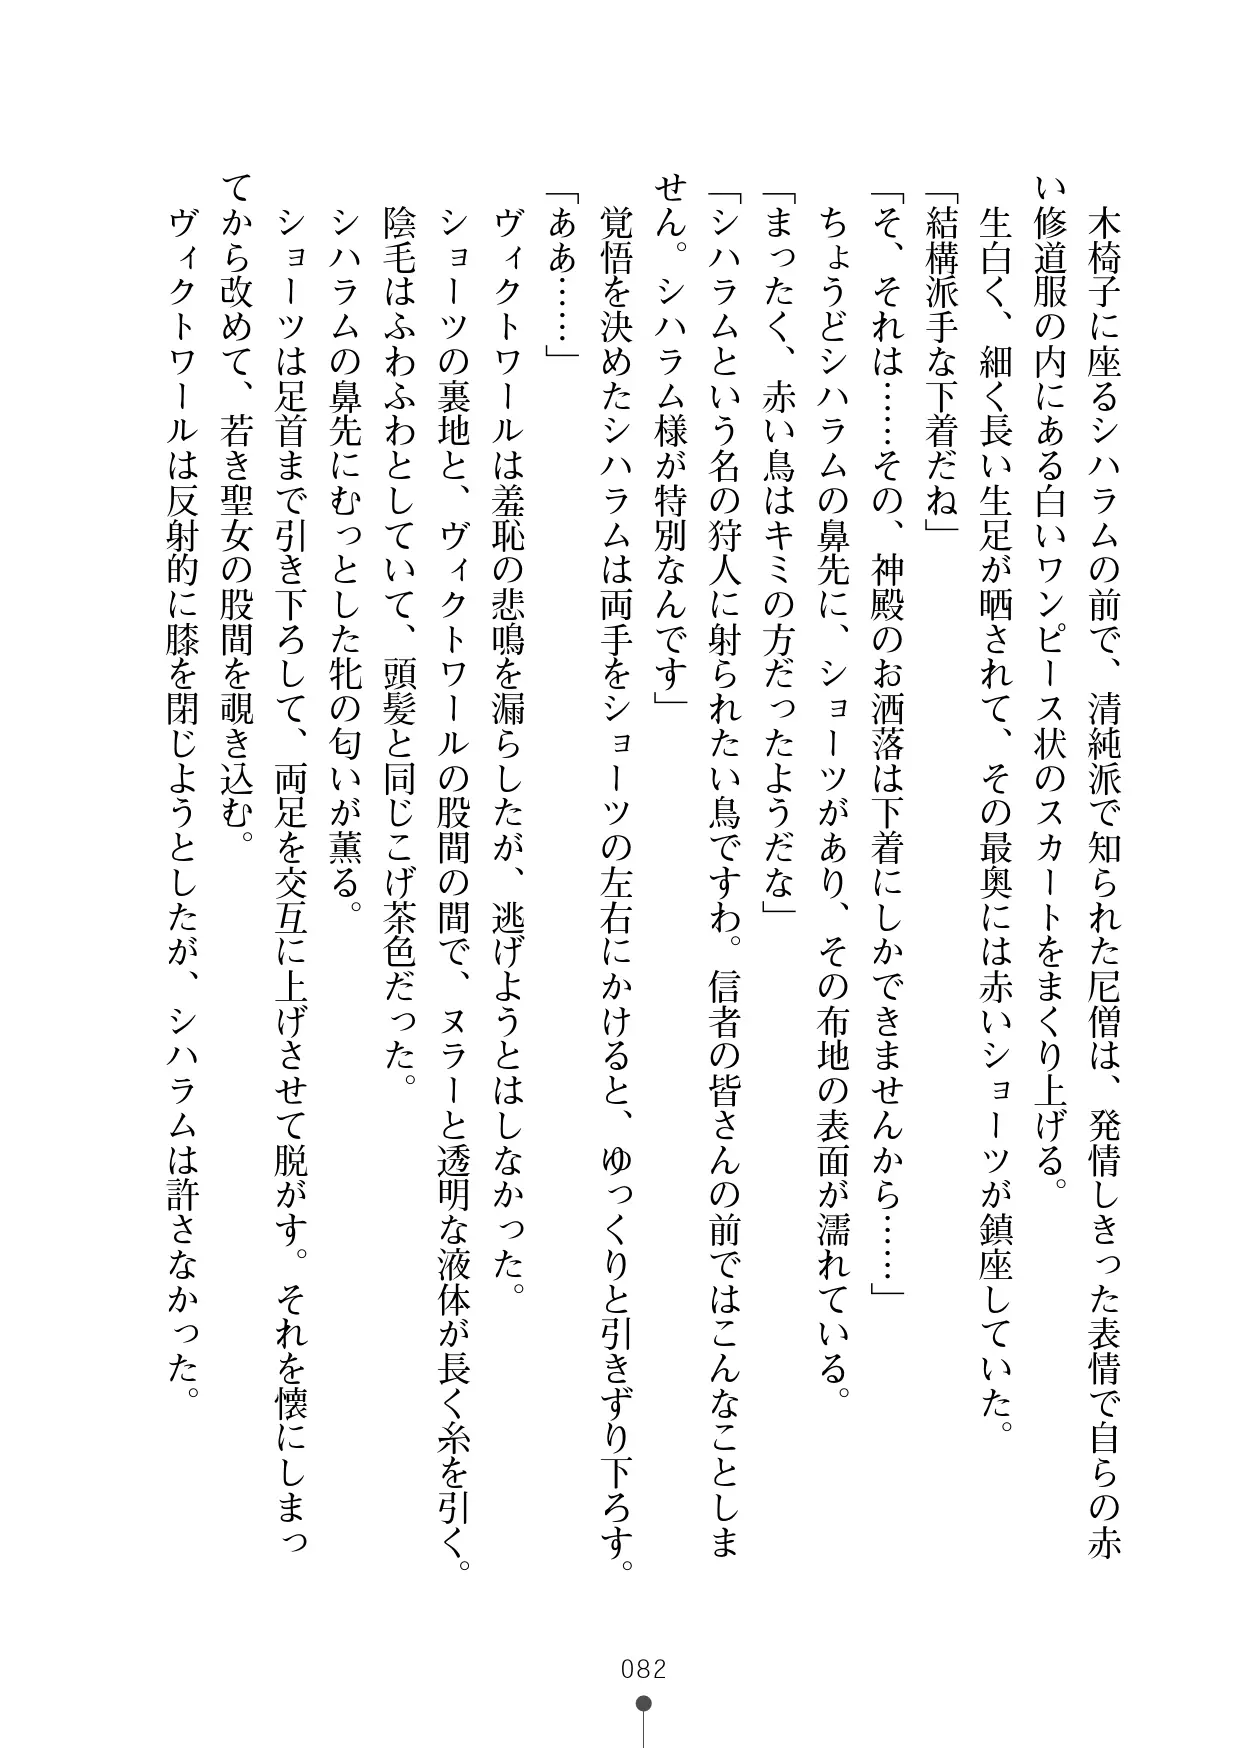 木椅子に座るシハラムの前で、清純派で知られた尼僧は、発情しきった表情で自らの赤
い修道服の内にある白いワンピース状のスカートをまくり上げる。
生白く、細く長い生足が晒されて、その最奥には赤いショーツが鎮座していた。
「結構派手な下着だね」
「そ、それは……その、神殿のお洒落は下着にしかできませんから……」
ちょうどシハラムの鼻先に、ショーツがあり、その布地の表面が濡れている。
「まったく、赤い鳥はキミの方だったようだな」
「シハラムという名の狩人に射られたい鳥ですわ。信者の皆さんの前ではこんなことしま
せん。シハラム様が特別なんです」
覚悟を決めたシハラムは両手をショーツの左右にかけると、ゆっくりと引きずり下ろす。
「ああ……」
ヴィクトワールは羞恥の悲鳴を漏らしたが、逃げようとはしなかった。
ショーツの裏地と、ヴィクトワールの股間の間で、ヌラーと透明な液体が長く糸を引く。
陰毛はふわふわとしていて、頭髪と同じこげ茶色だった。
シハラムの鼻先にむっとした牝の匂いが薫る。
ショーツは足首まで引き下ろして、両足を交互に上げさせて脱がす。それを懐にしまっ
てから改めて、若き聖女の股間を覗き込む。
ヴィクトワールは反射的に膝を閉じようとしたが、シハラムは許さなかった。
082